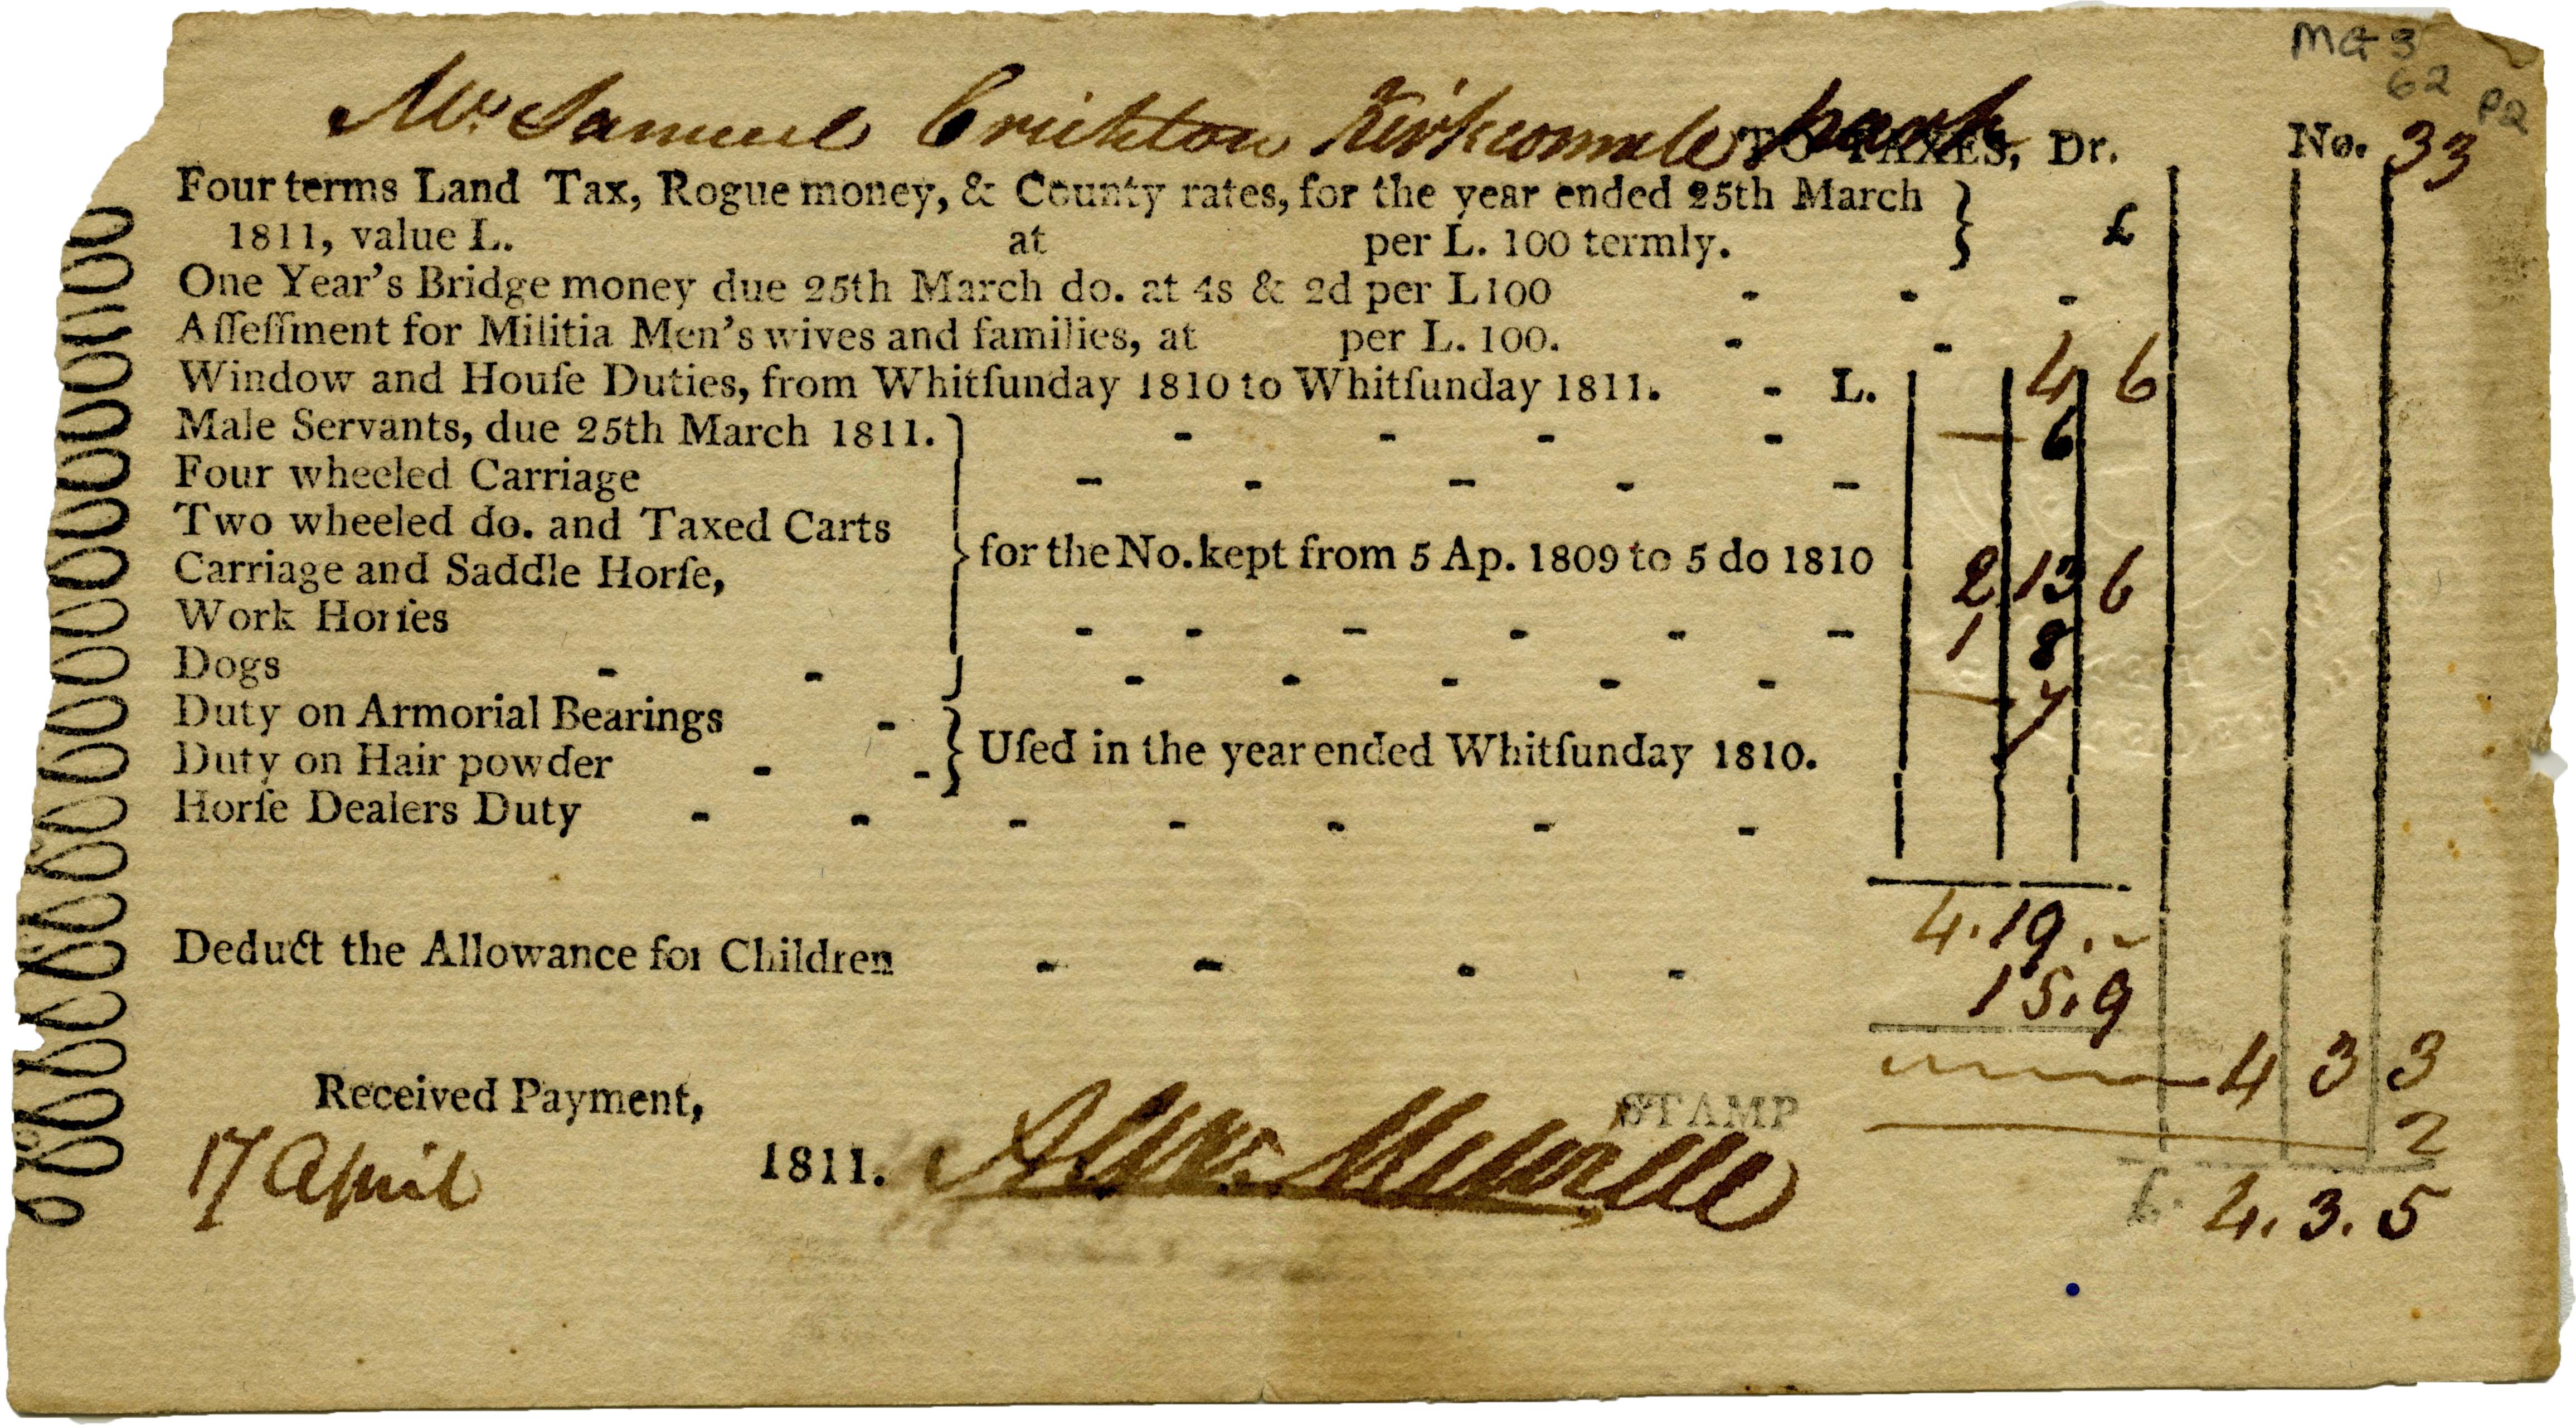 MG 3
62 P2
Mr. Samuel Crichton Kirkconnele park TO TAXES, Dr. No. 33
Four terms Land Tax, Rogue money, & County rates, for the year ended 25th March
1811, value L. at per L. 100 termly. } £
One Year's Bridge money due 25th March do. at 4s & 2d per L100 - - -
Aſſeſſment for Militia Men's wives and families, at per L. 100. - -
Window and Houſe Duties, from Whitſunday 1810 to Whitſunday 1811. - L. 4 6
Male Servants, due 25th March 1811. - - - - — 6
Four wheeled Carriage - - - - -
Two wheeled do. and Taxed Carts
Carriage and Saddle Horſe, } for the No. kept from 5 Ap. 1809 to 5 do 1810 2 13 6
Work Horſes - - - - - - 1 8
Dogs - - - - - - - — 7
Duty on Armorial Bearings -
Duty on Hair powder - - } Uſed in the year ended Whitſunday 1810.
Horſe Dealers Duty - - - - - - -
4. 19. ~
Deduct the Allowance for Children - - - -
15. 9
4 3 3
Received Payment, STAMP 2
17 April 1811. Alexr. Melville £. 4. 3. 5